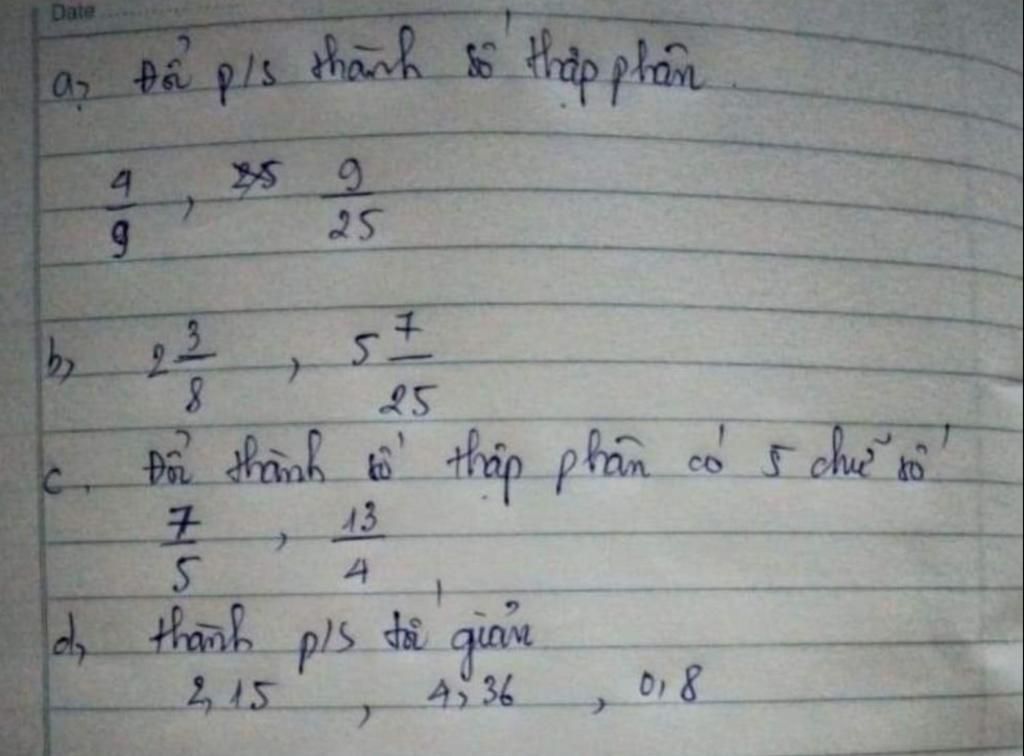 Date
a, Đổi p/s thành số thập phân.
4/9 , 9/25
b, 2 3/8 , 5 7/25
c. Đổi thành số thập phân có 5 chữ số
7/5 , 13/4
d, thành p/s tối giản
2,15 , 4,36 , 0,8